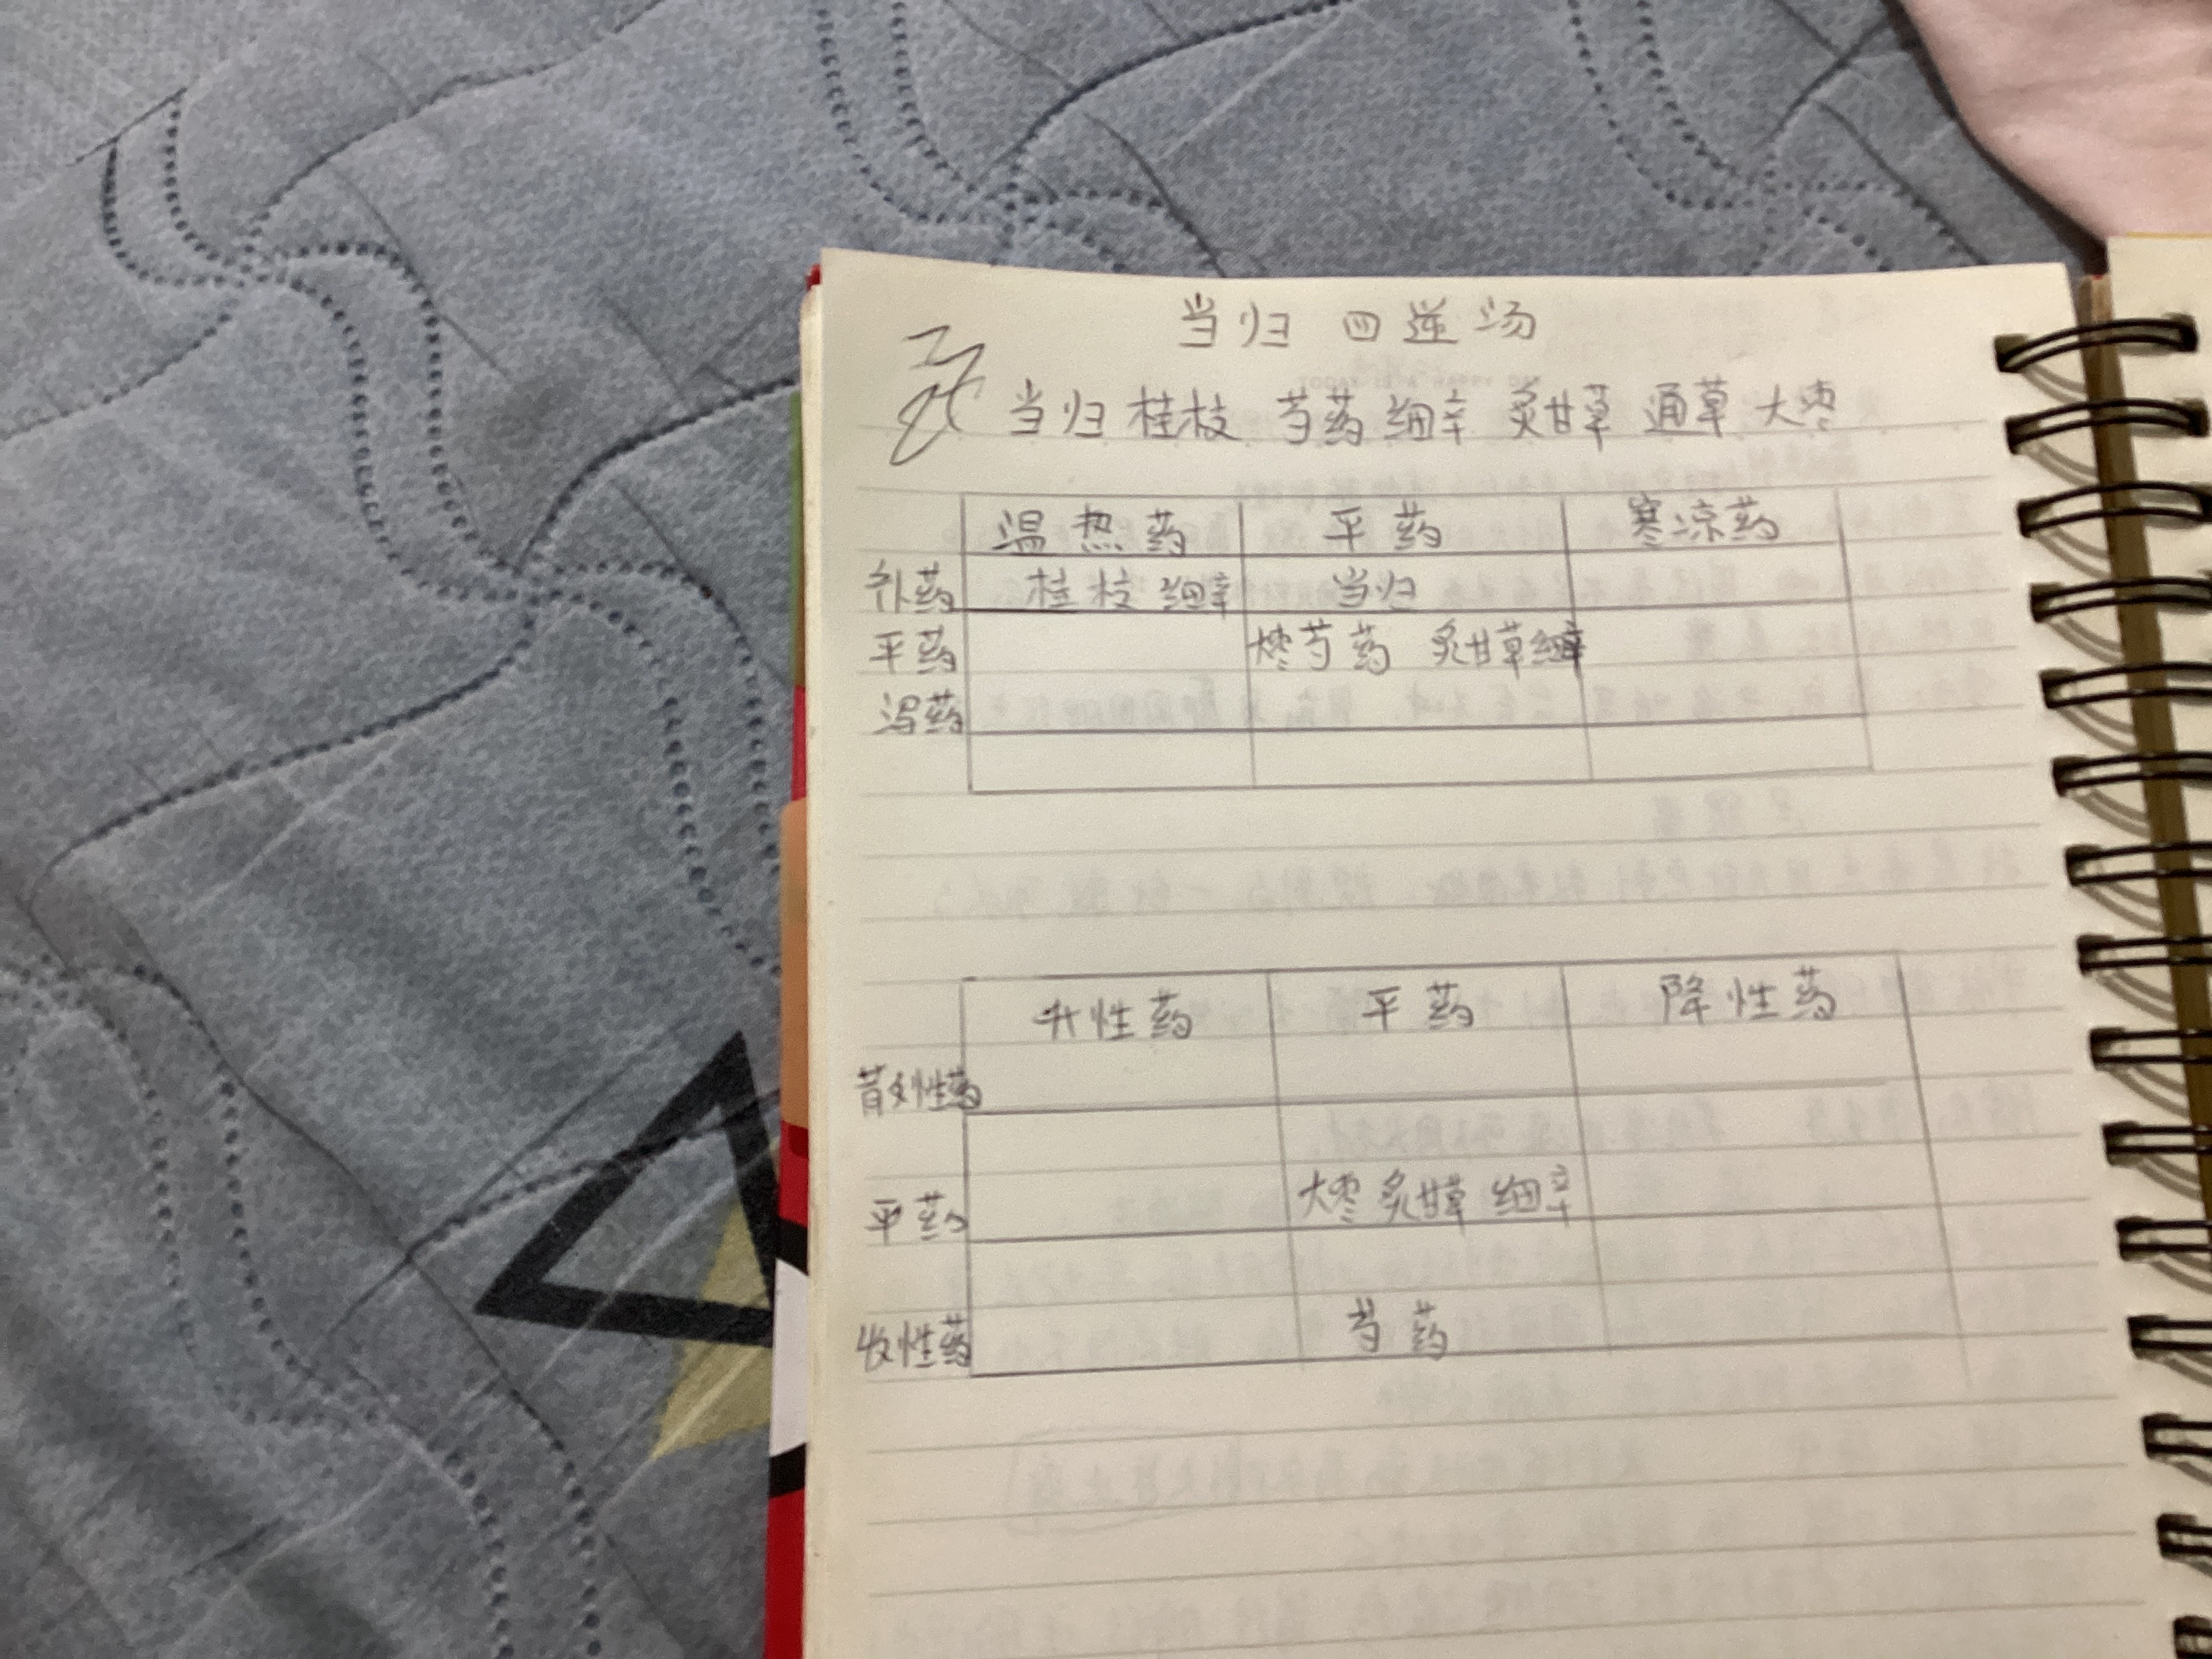 当归四逆汤
当归 桂枝 芍药 细辛 炙甘草 通草 大枣
温热药 平药 寒凉药
补药 桂枝 细辛 当归
平药 大枣 芍药 炙甘草 细辛
泻药
升性药 平药 降性药
散性药
平药 大枣 炙甘草 细辛
收性药 芍药